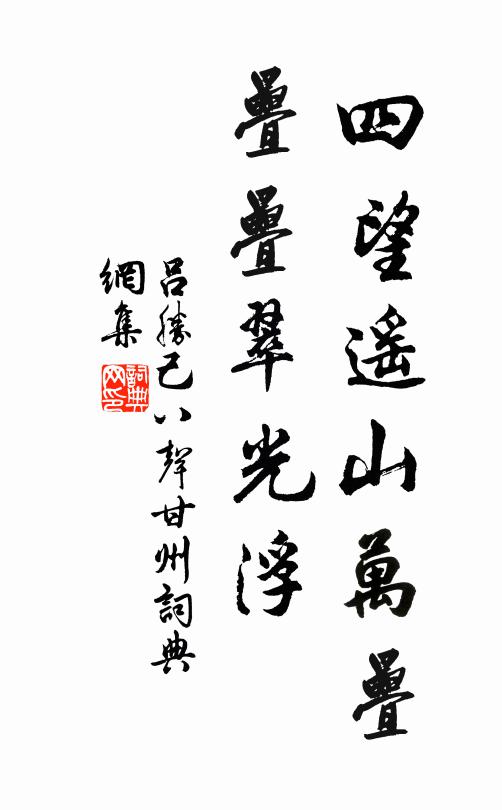 四望遥山萬疊
疊疊翠光浮
呂勝己八聲甘州詞典
網集
詞典
网印